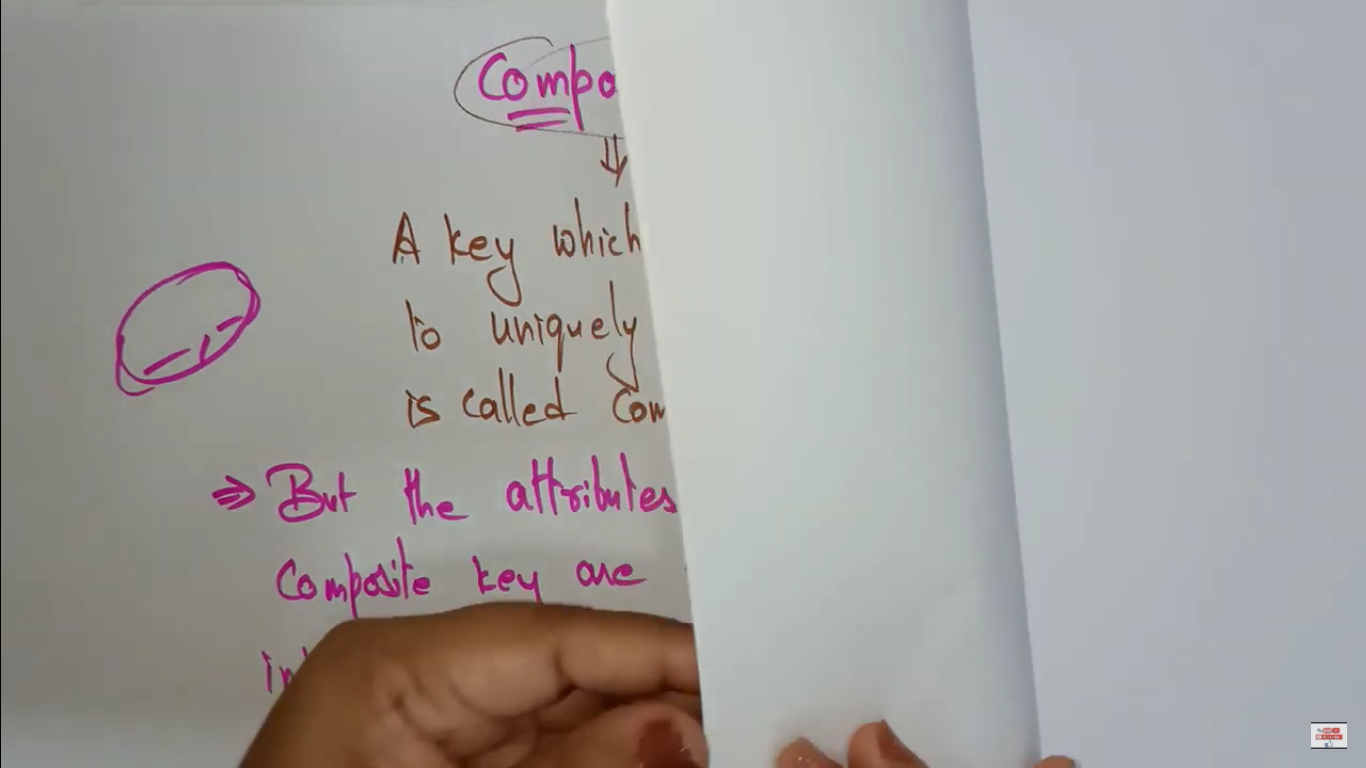 Compo
A key which
to uniquely
is called Com
⇒ But the attributes
Composite key are
in